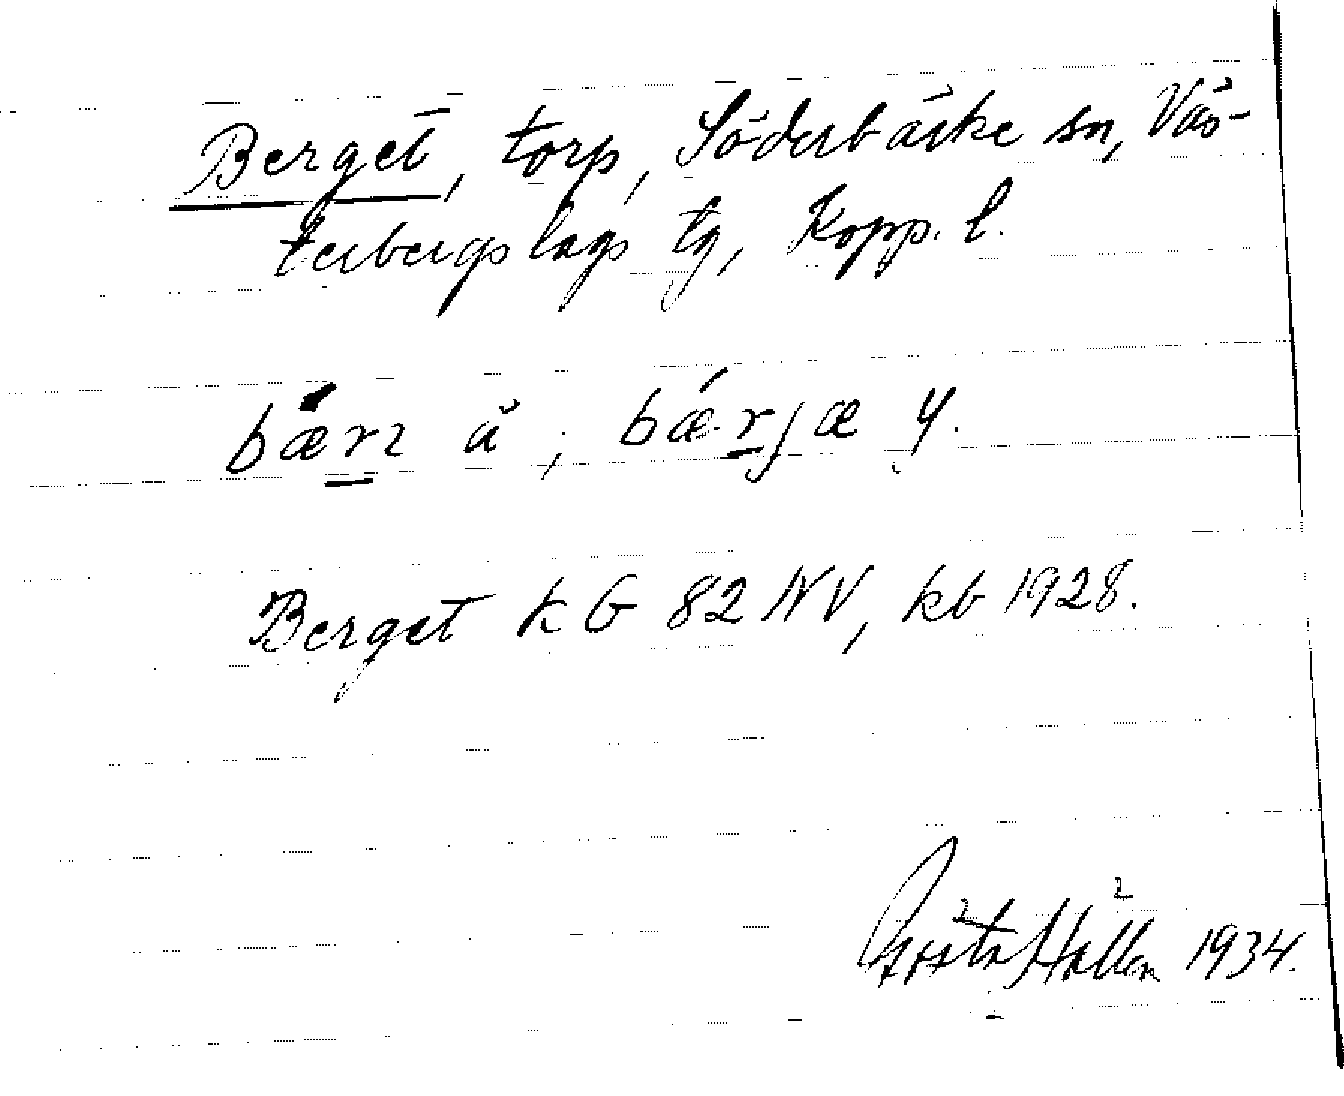 Berget, torp, Söderbärke sn, Väs-
terbergslags tg, Kopp. l.
bærɩ ä; bǽrjæ y.
Berget k G 82 NV, kb 1928.
Gösta Hallén 1934.